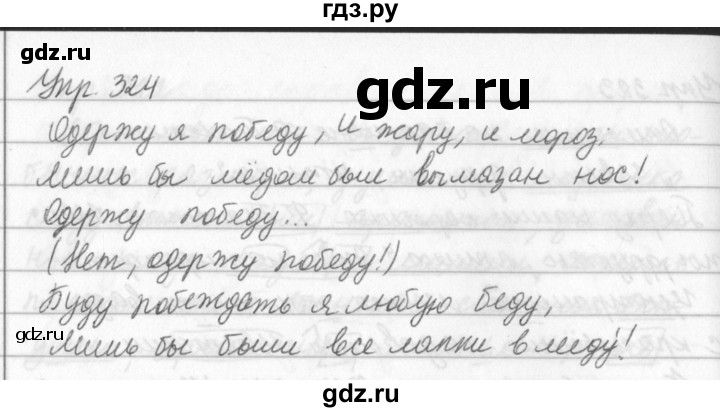 гдз.ру
gdz.ru
gdz.ru
Упр. 324
Одержу я победу, и жару, и мороз:
Лишь бы мёдом был вымазан нос!
Одержу победу...
(Нет, одержу победу!)
Буду побеждать я любую беду,
gdz.ru
Лишь бы были все лапки в меду!
gdz.ru
gdz.ru